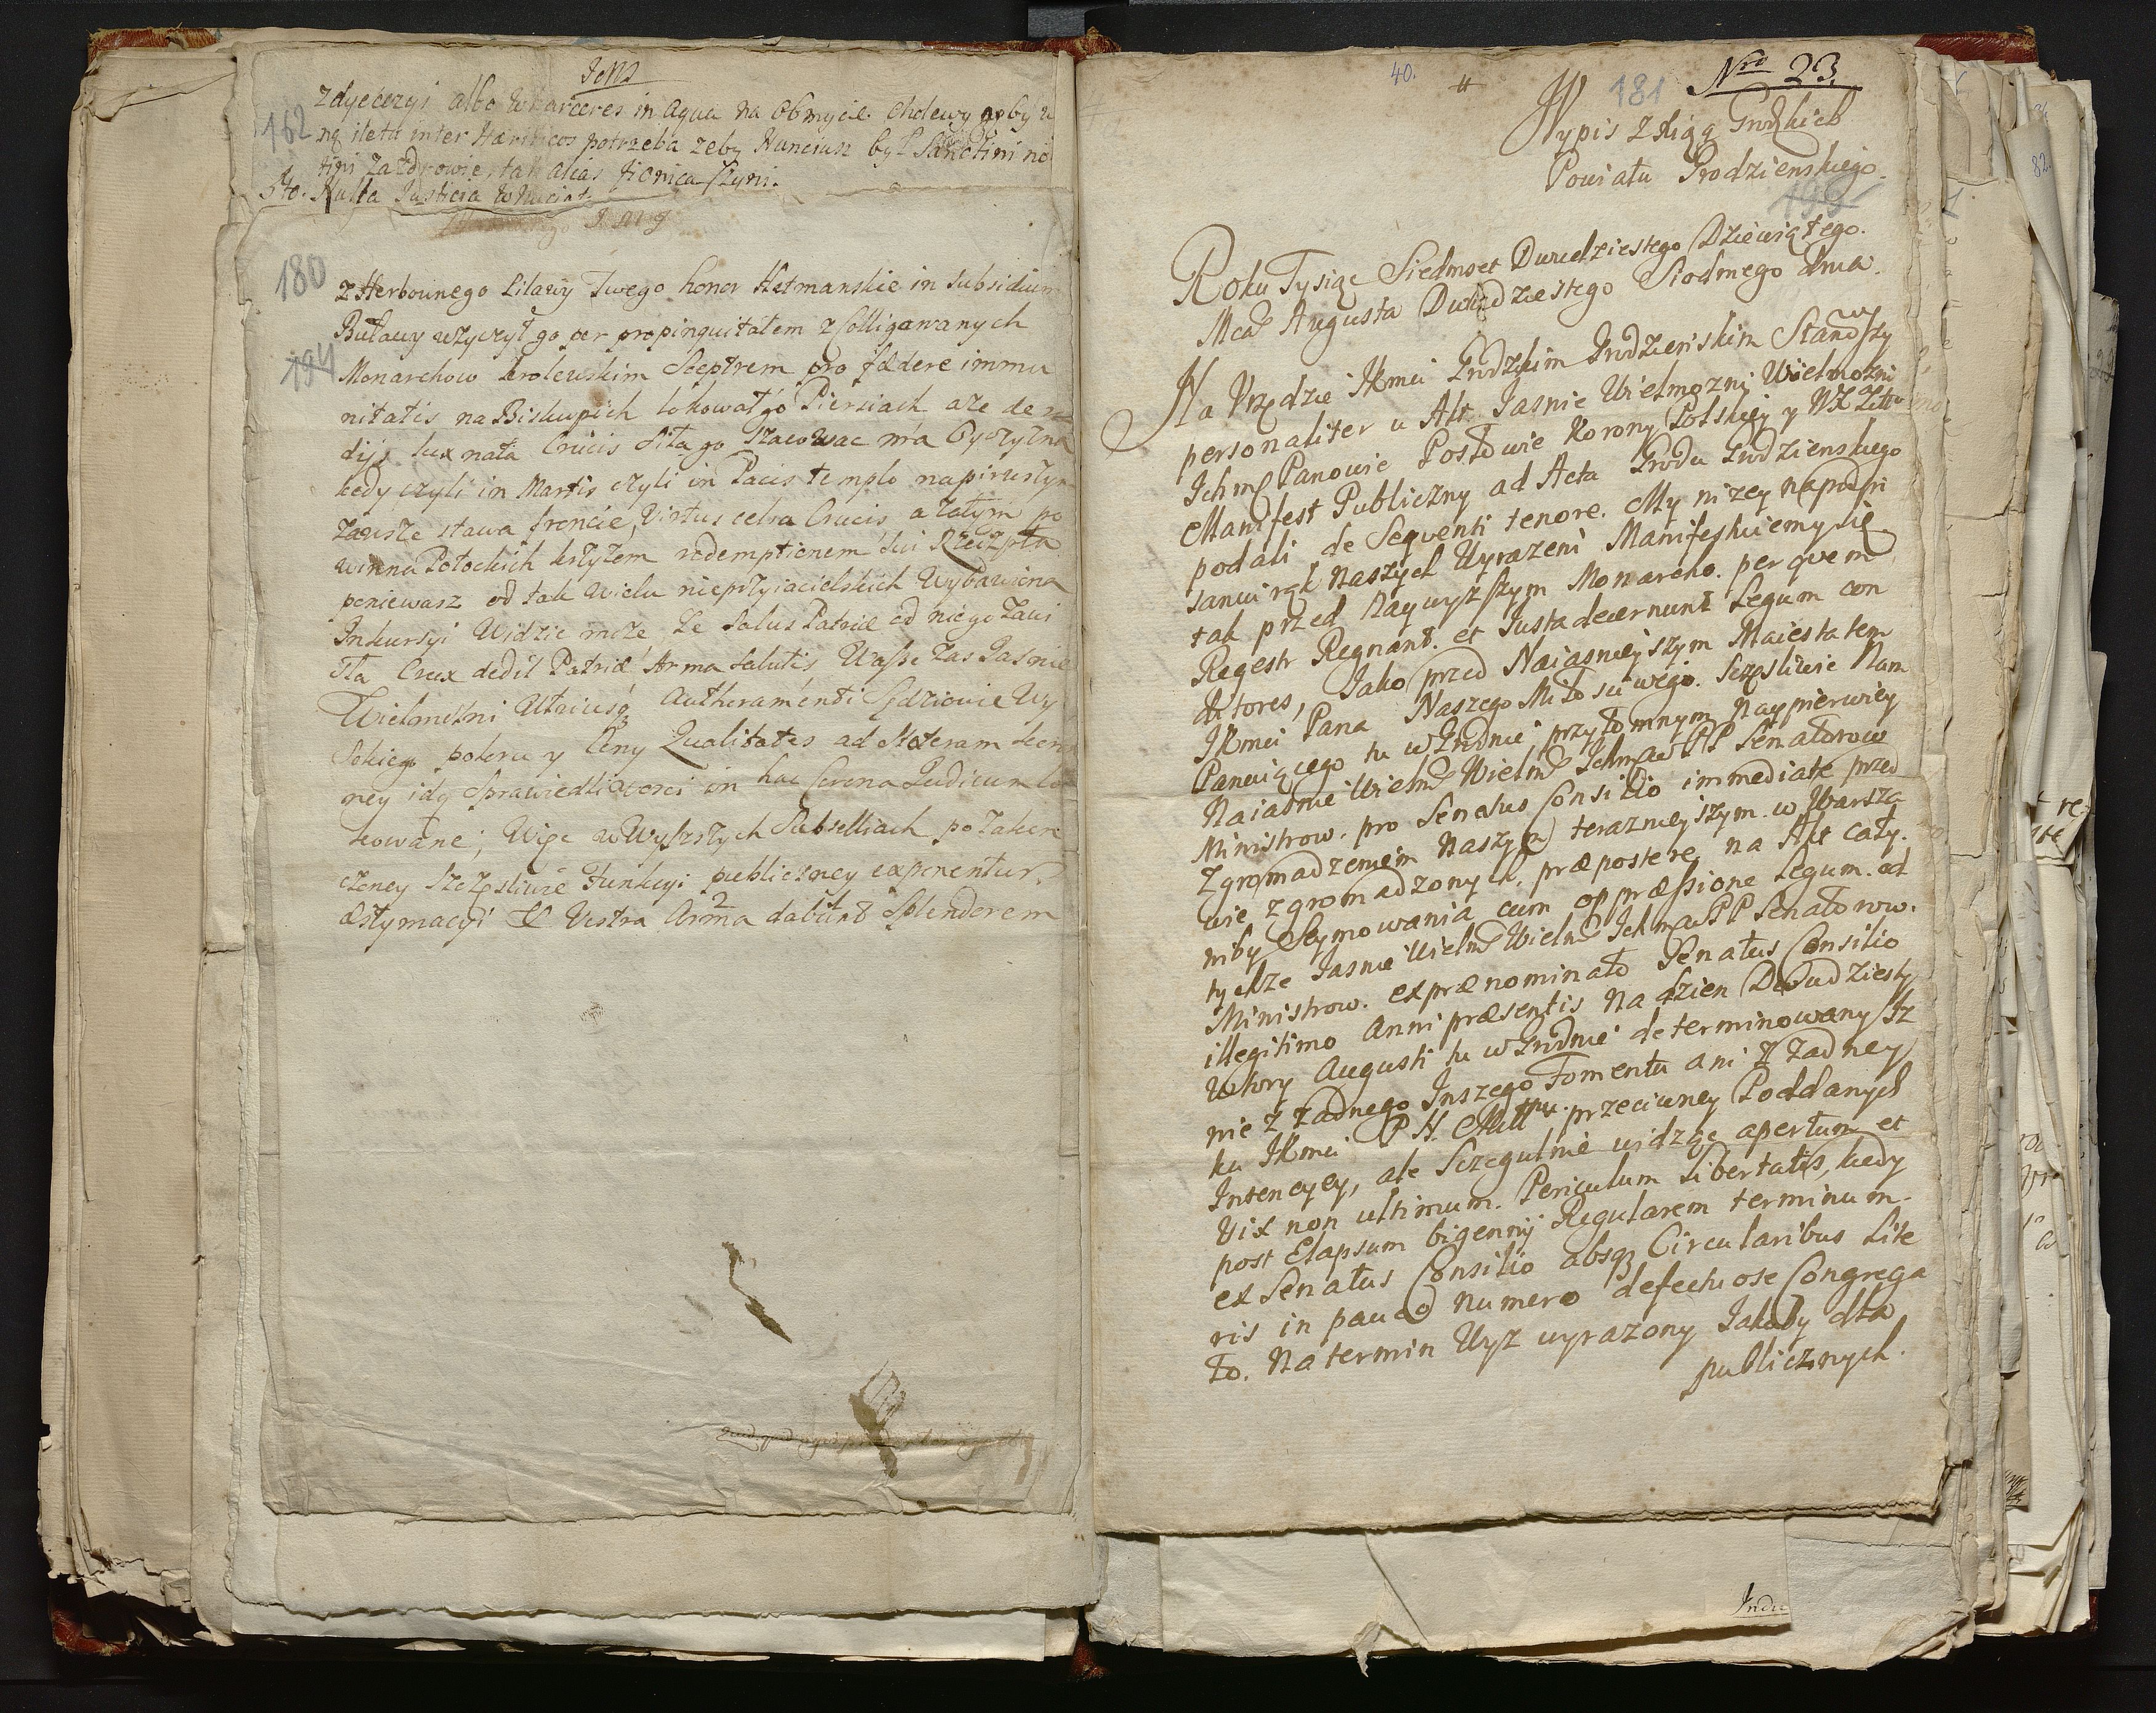 162
zdyeczyi albo w karceres in aqua na obmycie Cholewy
inter Hæreticos potrzeba zeby Nunciusz był
za zdrowie tak alias
5to. Nulla Justicia w Nuciat.
180
z Herbownego Pilawy Swego honor Hetmanskie in Subsidium
Buławy uzyczył go per propinquitatem z Colligowanych
194
Monarchow krolewskim Sceptrem pro fædere immu
nitatis na Biskupich lokował go Piersiach aze de
lux nata Crucis siła go szacowac ma Oyczyzna
kedy czyli in Martis czyli in Pacis templo na pirwszym
zawsze stawa froncie, Virtus celsa Crucis a zatym po
winna Potockich krzyzem redemptionem sui Rzeczpta
poniewasz od tak wielu nieprzyiacielskich Wybawiona
Inkursyi Widzie moze, ze Salus Patriæ od niego zawi
sła Crux dedit Patriæ Arma salutis Wasze zas Jasnie
Wielmozni Utriusq Authoramenti Sędziowie Wy
sokiego poloru y Ceny Qualitates ad Stateram
ney idą Sprawiedliwosci in hac Serena Judicum lo
kowane; Więc w Wyszszych Subselliach po zakon
czoney szczęsliwie Funkcyi publiczney exponentur
æstymacyi Et Vestra Arma dabunt Splendorem
40.
181
Nro 23.
Wypis z Xiąg Grodzkich
Powiatu Grodzienskiego.
195
Roku Tysiąc Siedmset Dwudziestego Dziewiątego.
Mca Augusta Dwudziestego Siodmego dnia.
Na Urzędzie JKmci Grodzkim Grodzienskim Stanowszy
personaliter u Akt Jasnie Wielmozni Wielmozni
Ichmc Panowie Posłowie Korony Polskiey y WX Litew
Manifest Publiczny ad Acta Grodu Grodzienskiego
podali de Sequenti tenore. My nizey na podpi
saniu rąk Naszych Wyrazeni Manifestuiemy się
tak przed Naywyzszym Monarcho. per quem
Regestr Regnant. et Justa decernunt Legum con
ditores, Jako przed Naiasnieyszym Maiestatem
JKmci Pana Naszego Miłosciwego. Szczęsliwie Nam
Panuiącego tu w Grodnie przytomnym Naypierwiey
Naiasnie Wielm Wielm Ichmciow PP Senatorow
Ministrow. pro Senatus Consilio immediate przed
Zgromadzeniem Naszym teraznieyszym. w Warsza
wie zgromadzonych, præpostere na Akt cały.
niby Seymowania cum oppræssione Legum. od
tychze Jasnie Wielm Wielm Ichmciow PP Senatorow.
Ministrow. ex prænominato Senatus Consilio
illegitimo Anni præsentis Na dzien Dwudziesty
Wtory Augusti tu w Grodnie determinowany Iz
nie z zadnego Inszego Fomentu ani z zadney
ku JKmci P N. Młttwu. przeciwney Poddanych
Intencyey, ale Szczegulnie widząc apertum et
Vix non ultimum. Periculum Libertatis, kiedy
post Elapsum bigennij Regularem terminum.
ex Senatus Consilio absq Circularibus Lite
ris in pauco numero defectuose Congrega
to. Na termin Wyz wyrazony Jakoby dla
publicznych.
Indu